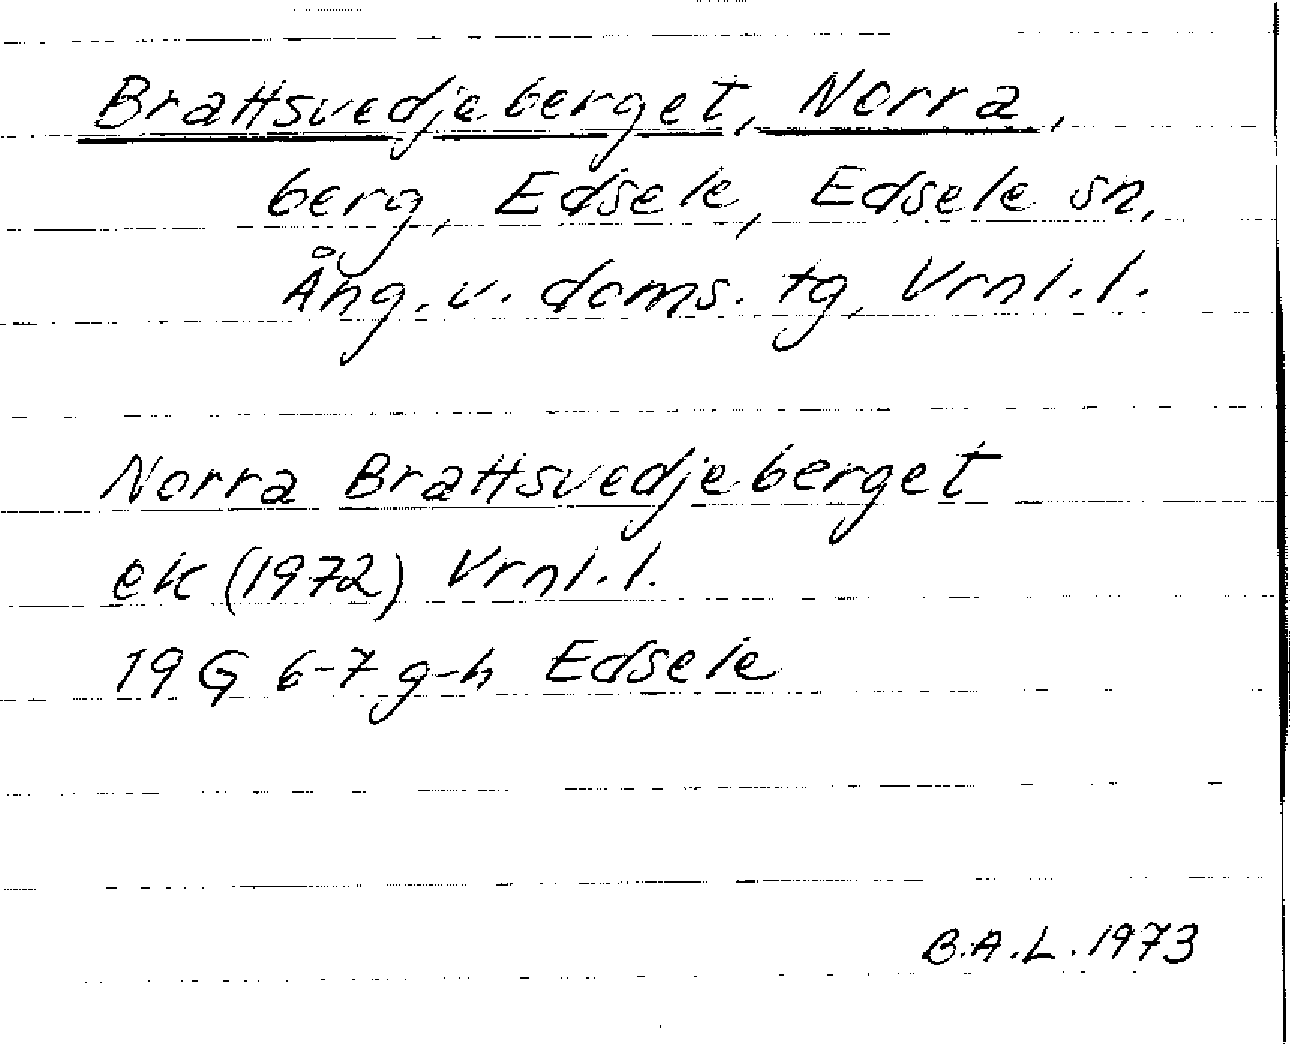 Brattsvedjeberget, Norra,
berg, Edsele, Edsele sn,
Ång. v. doms. tg, Vrnl. l.
Norra Brattsvedjeberget
ek (1972) Vrnl. l.
19 G 6-7 g-h Edsele
B.A.L. 1973